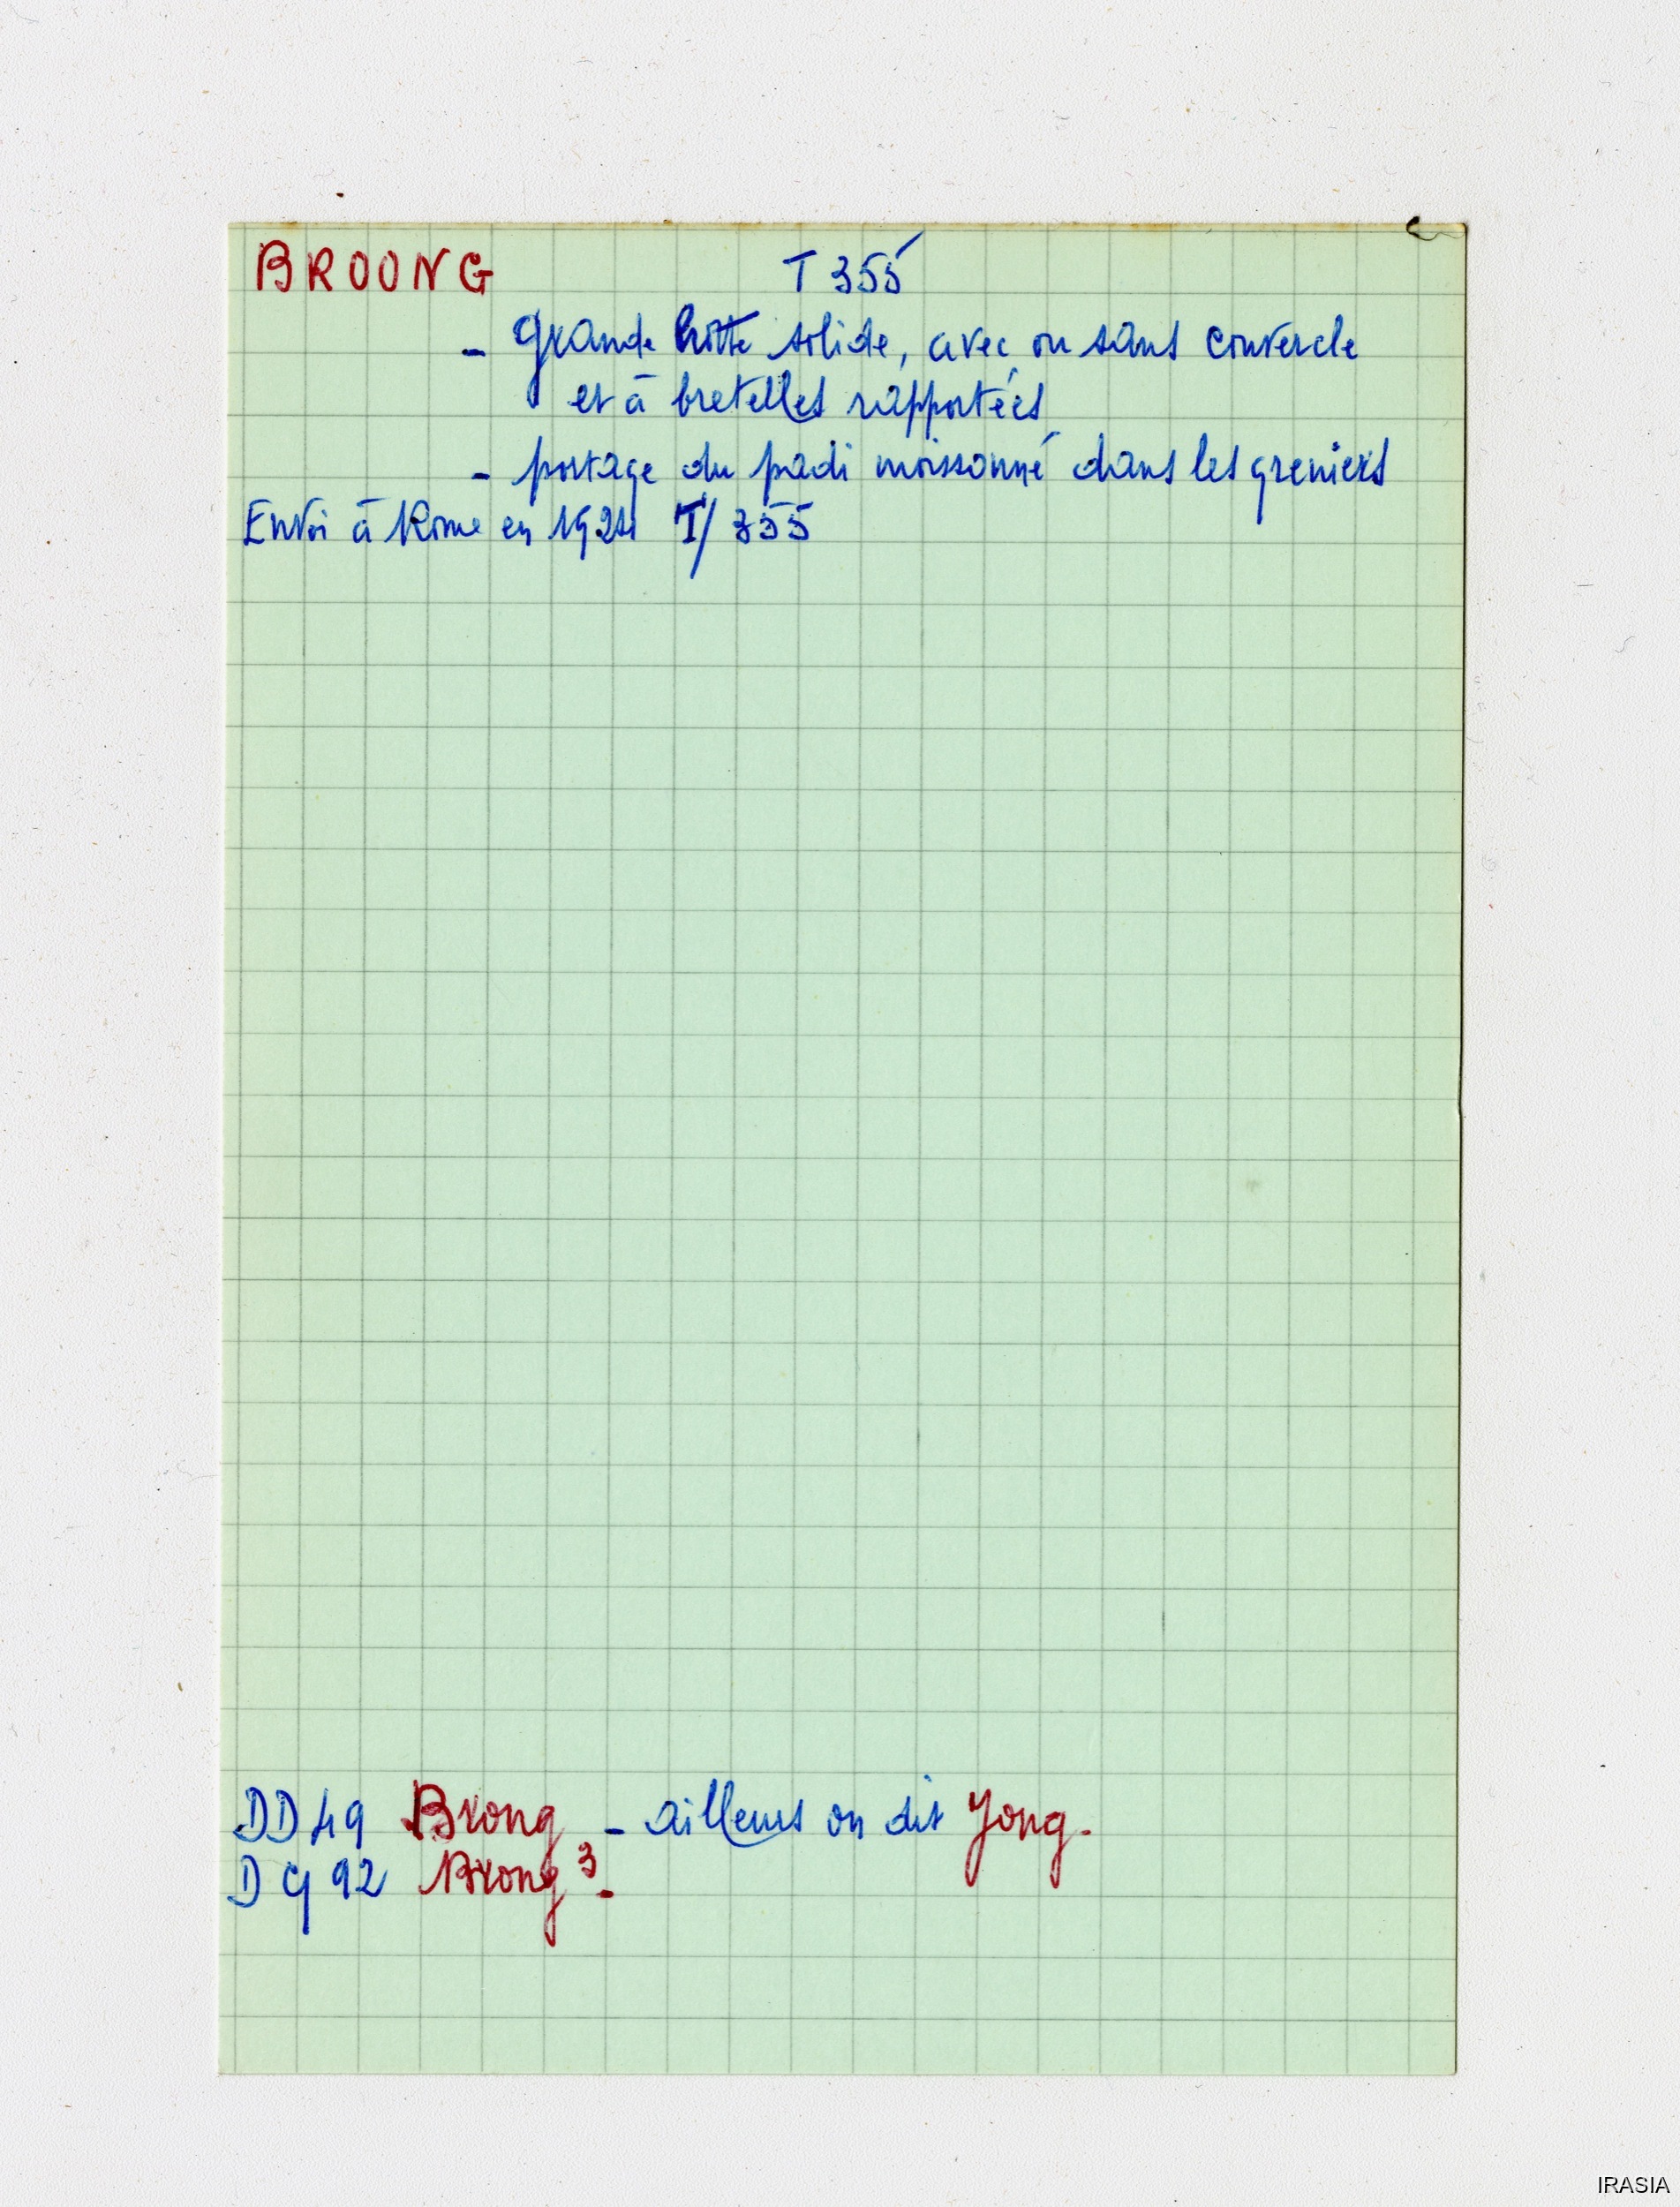 BROONG T 355
- Grande hotte solide, avec ou sans couvercle
et à bretelles rapportées
- portage du padi moissonné dans les greniers
Envoi à Rome en 1924 T/355
DD49 Brong - ailleurs on dit Yong.
DG 92 Brong 3.
IRASIA